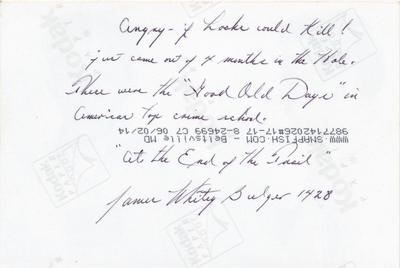 Angry - if Looks could Kill!
just came out of 4 months in the Hole.
These were the "Good Old Days" in
American Top crime school.
WWW.SNAPFISH.COM - Beltsville MD
9877142026#17-17 8-24699 C7 06/02/14
"At the End of the Trail"
James Whitey Bulger 1428
Kodak
PAPER